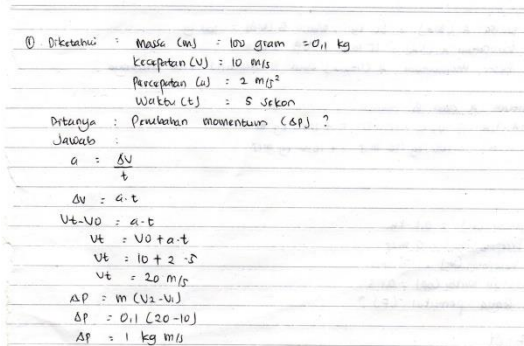 ① Diketahui : Massa (m) : 100 gram = 0,1 kg
kecepatan (v) : 10 m/s
Percepatan (a) : 2 m/s²
Waktu (t) : 5 sekon
Ditanya : Perubahan momentum (ΔP) ?
Jawab :
a = Δv / t
Δv = a.t
Vt-V0 = a-t
Vt = V0 + a.t
Vt = 10 + 2 . 5
Vt = 20 m/s
ΔP = m (V2-V1)
ΔP = 0,1 (20-10)
ΔP = 1 kg m/s